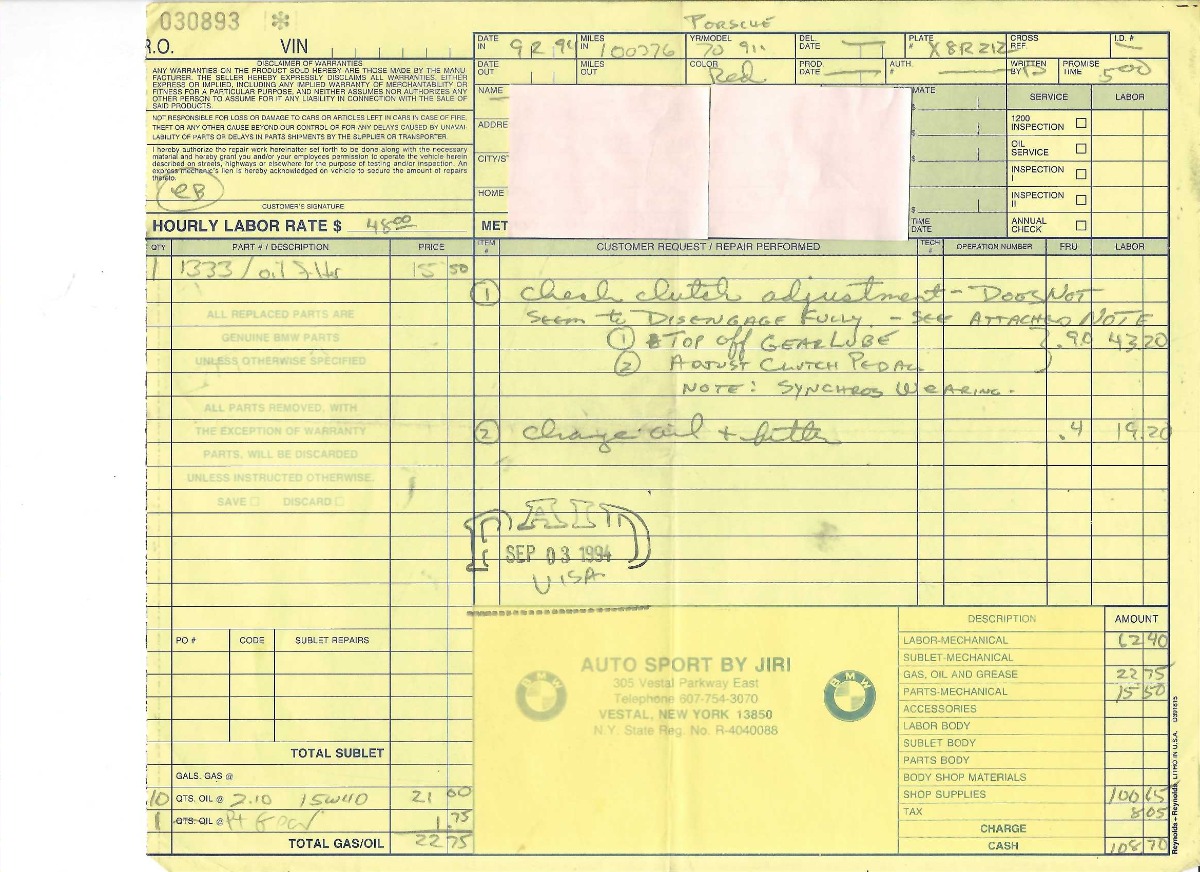 030893 *
R.O. VIN
DISCLAIMER OF WARRANTIES
ANY WARRANTIES ON THE PRODUCT SOLD HEREBY ARE THOSE MADE BY THE MANU-
FACTURER. THE SELLER HEREBY EXPRESSLY DISCLAIMS ALL WARRANTIES, EITHER
EXPRESS OR IMPLIED, INCLUDING ANY IMPLIED WARRANTY OF MERCHANTABILITY OR
FITNESS FOR A PARTICULAR PURPOSE, AND NEITHER ASSUMES NOR AUTHORIZES ANY
OTHER PERSON TO ASSUME FOR IT ANY LIABILITY IN CONNECTION WITH THE SALE OF
SAID PRODUCTS.
NOT RESPONSIBLE FOR LOSS OR DAMAGE TO CARS OR ARTICLES LEFT IN CARS IN CASE OF FIRE,
THEFT OR ANY OTHER CAUSE BEYOND OUR CONTROL OR FOR ANY DELAYS CAUSED BY UNAVAI-
LABILITY OF PARTS OR DELAYS IN PARTS SHIPMENTS BY THE SUPPLIER OR TRANSPORTER.
I hereby authorize the repair work hereinafter set forth to be done along with the necessary
material and hereby grant you and/or your employees permission to operate the vehicle herein
described on streets, highways or elsewhere for the purpose of testing and/or inspection. An
express mechanic's lien is hereby acknowledged on vehicle to secure the amount of repairs
thereto.
CUSTOMER'S SIGNATURE
HOURLY LABOR RATE $ 48.00
PORSCHE
DATE IN 9 2 94 MILES IN 100376 YR/MODEL 70 911 DEL. DATE PLATE # X8R212 CROSS REF. I.D. #
DATE OUT MILES OUT COLOR Red PROD. DATE AUTH. # WRITTEN BY PROMISE TIME 5:00
NAME
ADDRE
CITY/S
HOME
MET
MATE
$
$
$
$
TIME
DATE
SERVICE LABOR
1200 INSPECTION
OIL SERVICE
INSPECTION I
INSPECTION II
ANNUAL CHECK
QTY PART # / DESCRIPTION PRICE
1 1333 / oil filter 15 50
ALL REPLACED PARTS ARE
GENUINE BMW PARTS
UNLESS OTHERWISE SPECIFIED
ALL PARTS REMOVED, WITH
THE EXCEPTION OF WARRANTY
PARTS, WILL BE DISCARDED
UNLESS INSTRUCTED OTHERWISE.
SAVE DISCARD
ITEM # CUSTOMER REQUEST / REPAIR PERFORMED TECH # OPERATION NUMBER FRU LABOR
1 check clutch adjustment - DOES NOT
SEEM to DISENGAGE FULLY - SEE ATTACHED NOTE
1 TOP off GEAR LUBE .90 43.20
2 ADJUST CLUTCH PEDAL
NOTE: SYNCHROS WEARING.
2 change oil + filter .4 19.20
PAID
SEP 03 1994
VISA
PO # CODE SUBLET REPAIRS
TOTAL SUBLET
GALS. GAS @
10 QTS. OIL @ 2.10 15W40 21 00
1 QTS. OIL @ 1.75
TOTAL GAS/OIL 22 75
AUTO SPORT BY JIRI
305 Vestal Parkway East
Telephone 607-754-3070
VESTAL, NEW YORK 13850
N.Y. State Reg. No. R-4040088
BMW
BMW
DESCRIPTION AMOUNT
LABOR-MECHANICAL 62 40
SUBLET-MECHANICAL
GAS, OIL AND GREASE 22 75
PARTS-MECHANICAL 15 50
ACCESSORIES
LABOR BODY
SUBLET BODY
PARTS BODY
BODY SHOP MATERIALS
SHOP SUPPLIES 100 65
TAX 8 05
CHARGE
CASH 108 70
Reynolds + Reynolds, LITHO IN U.S.A.